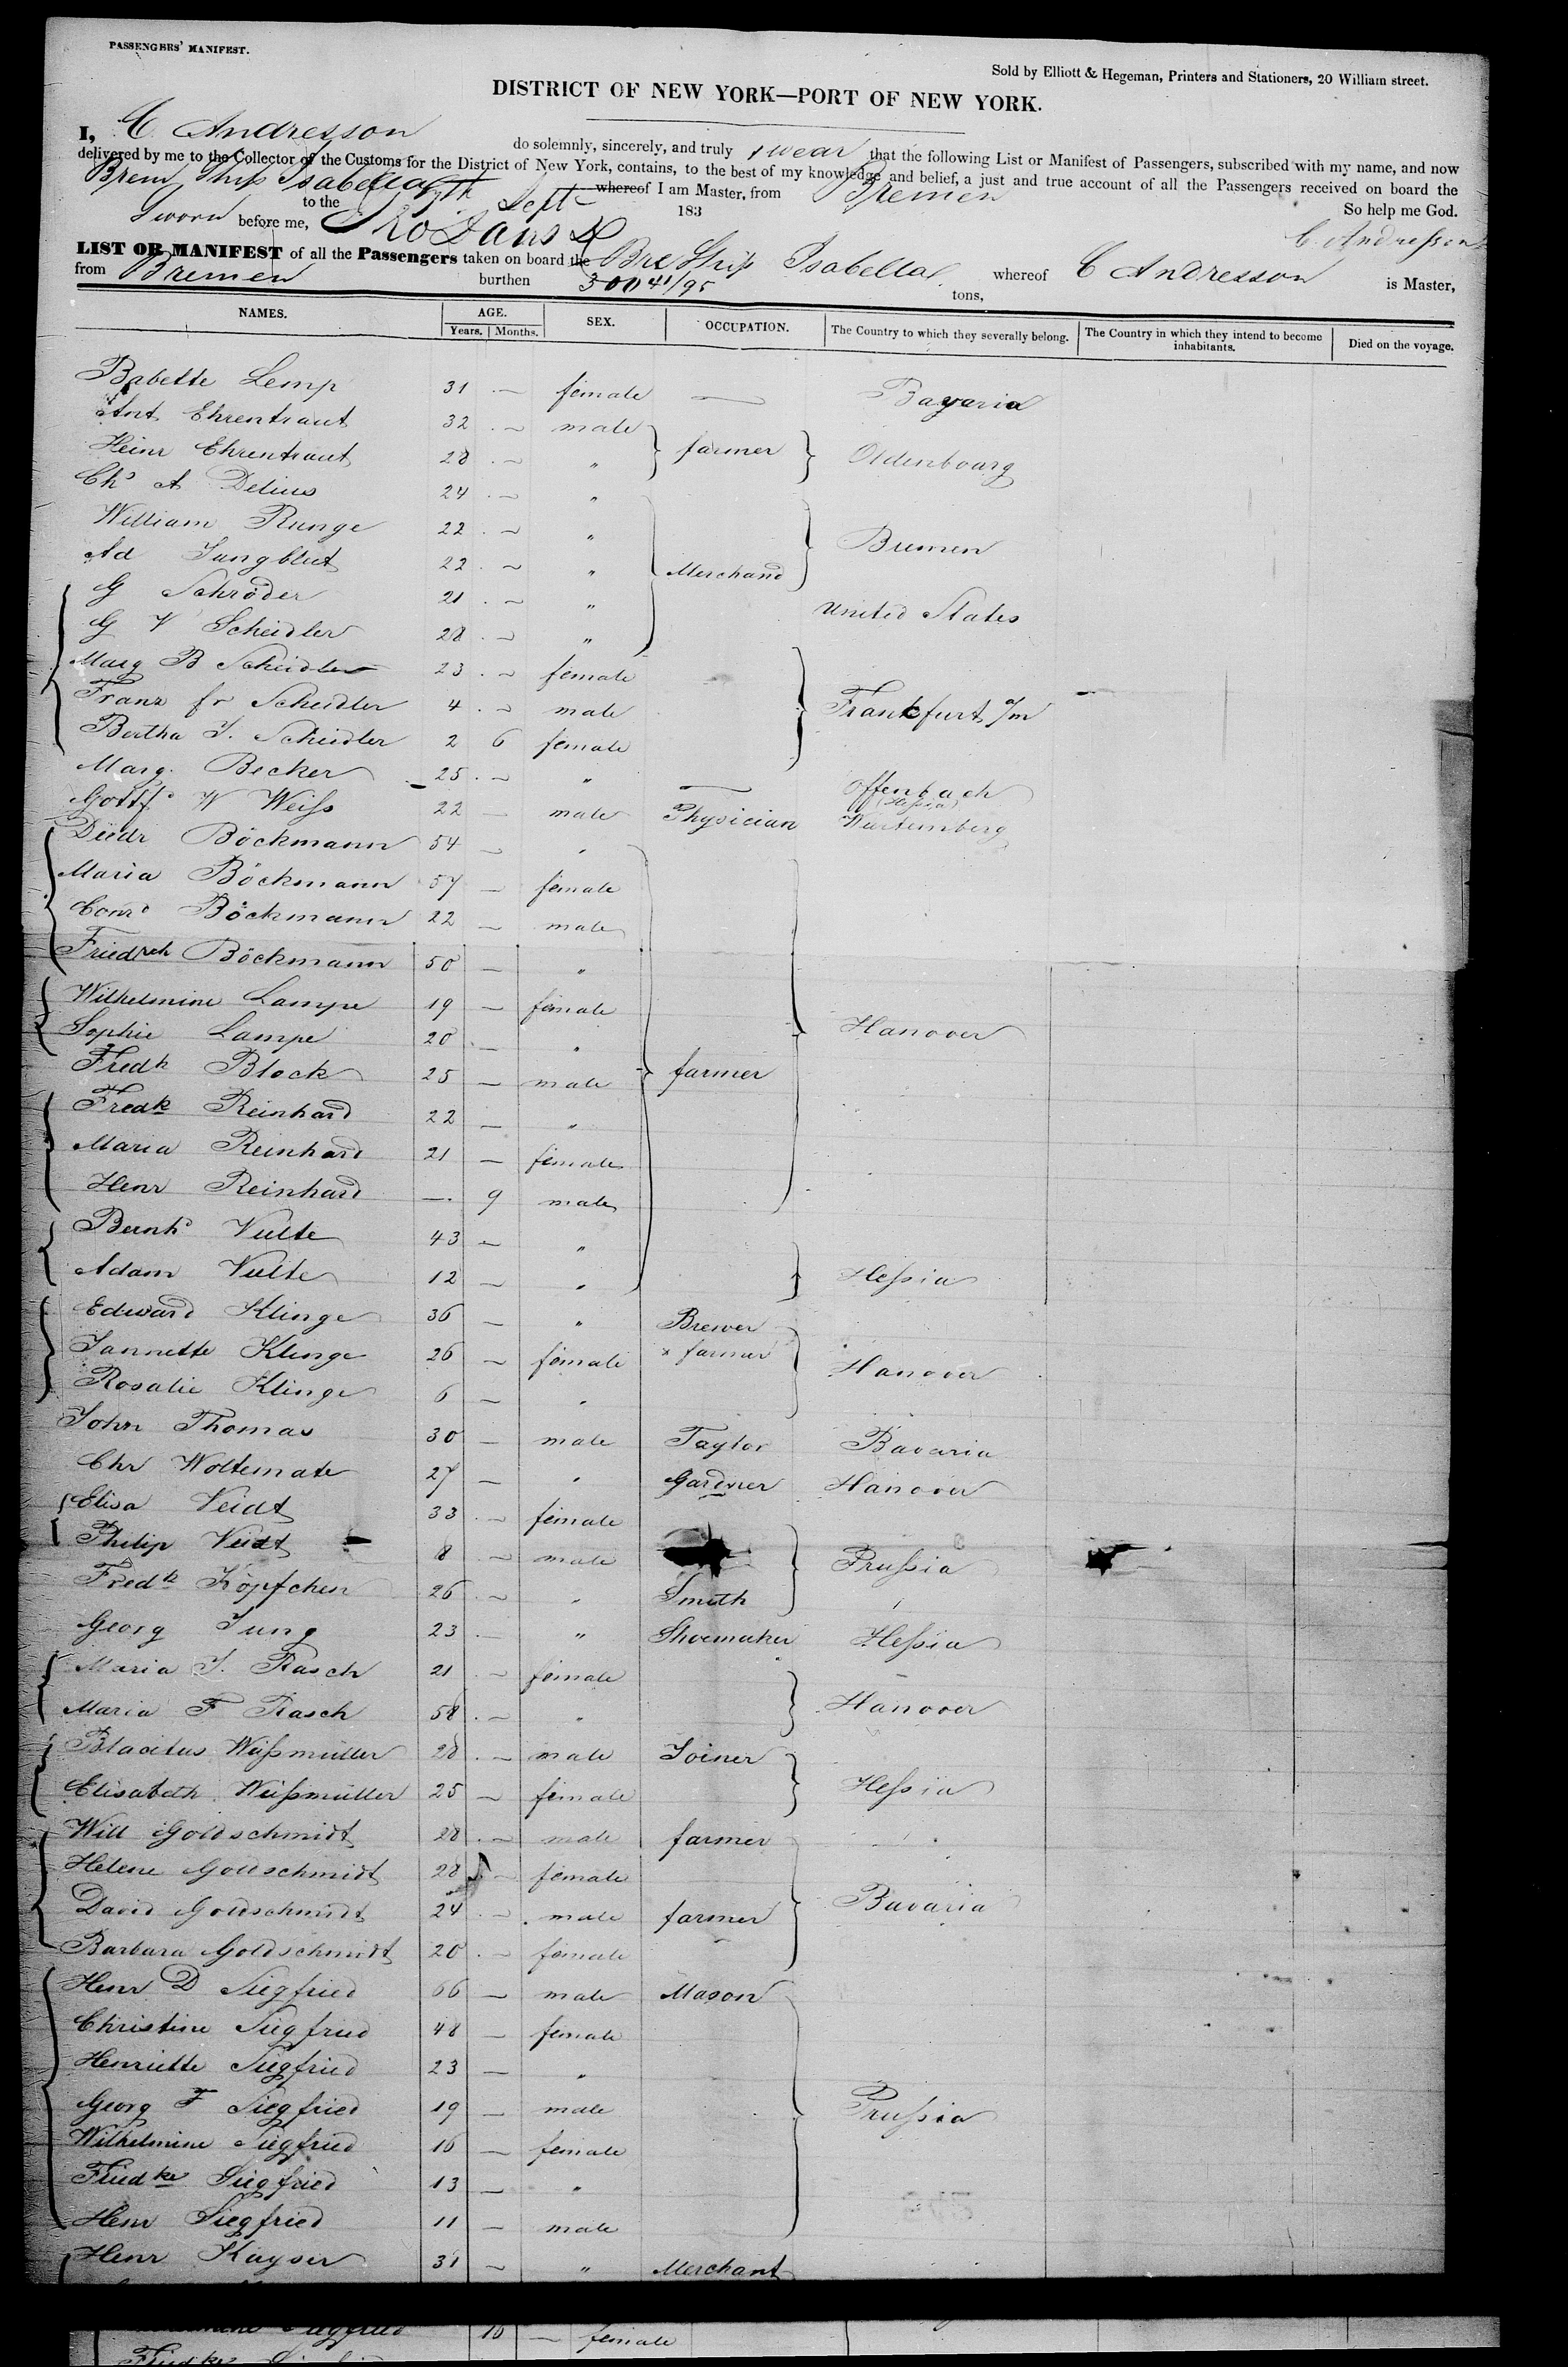 PASSENGERS' MANIFEST.
Sold by Elliott & Hegeman, Printers and Stationers, 20 William street.
DISTRICT OF NEW YORK—PORT OF NEW YORK.
I, C. Andresson do solemnly, sincerely, and truly swear that the following List or Manifest of Passengers, subscribed with my name, and now
delivered by me to the Collector of the Customs for the District of New York, contains, to the best of my knowledge and belief, a just and true account of all the Passengers received on board the
Brem Ship Isabella whereof I am Master, from Bremen
Sworn to the Sept 183 So help me God.
before me, C. Andresson
LIST OR MANIFEST of all the Passengers taken on board the Bre Ship Isabella whereof C Andresson is Master,
from Bremen burthen 300 41/95 tons,
NAMES. AGE. SEX. OCCUPATION. The Country to which they severally belong. The Country in which they intend to become inhabitants. Died on the voyage.
Years. Months.
Babette Lemp 31 — female — Bavaria
Ant Ehrentraut 32 — male
Heinr Ehrentraut 28 — " farmer Oldenbourg
Chs A Delius 24 — "
William Runge 22 — " Bremen
Ad Jungblut 22 — " Merchand
G Schröder 21 — " United States
G V Scheidler 28 — "
Marg B Scheidler 23 — female
Franz fr Scheidler 4 — male Frankfurt a/m
Bertha J. Scheidler 2 6 female
Marg. Becker 25 — " — Offenbach (Hessia)
Gottf W Weiss 22 — male Physician Wurtemberg
Diedr Böckmann 54 — "
Maria Böckmann 57 — female
Conrd Böckmann 22 — male
Friedrch Böckmann 50 — "
Wilhelmine Lampe 19 — female
Sophie Lampe 20 — " Hanover
Fredk Block 25 — male farmer
Fredk Reinhard 22 — "
Maria Reinhard 21 — female
Henr Reinhard — 9 male
Bernhd Vulte 43 — "
Adam Vulte 12 — " Hessia
Edward Klinge 36 — " Brewer
Jannette Klinge 26 — female x farmer Hanover
Rosalie Klinge 6 — "
John Thomas 30 — male Taylor Bavaria
Chr Woltemate 27 — " Gardner Hanover
Elisa Veidt 33 — female
Philip Veidt 8 — male Prussia
Fredk Köpfchen 26 — " Smith
Georg Jung 23 — " Shoemaker Hessia
Maria J. Rasch 21 — female
Maria F Rasch 58 — " Hanover
Placitus Weissmüller 28 — male Joiner
Elisabeth Weissmüller 25 — female Hessia
Will Goldschmidt 28 — male farmer
Helene Goldschmidt 28 — female
David Goldschmidt 24 — male farmer Bavaria
Barbara Goldschmidt 20 — female
Henr D Siegfried 66 — male Mason
Christine Siegfried 48 — female
Henriette Siegfried 23 — "
Georg F Siegfried 19 — male Prussia
Wilhelmine Siegfried 16 — female
Friedke Siegfried 13 — "
Henr Siegfried 11 — male
Henr Kayser 31 — " Merchant
Siegfried 16 — female
Friedke